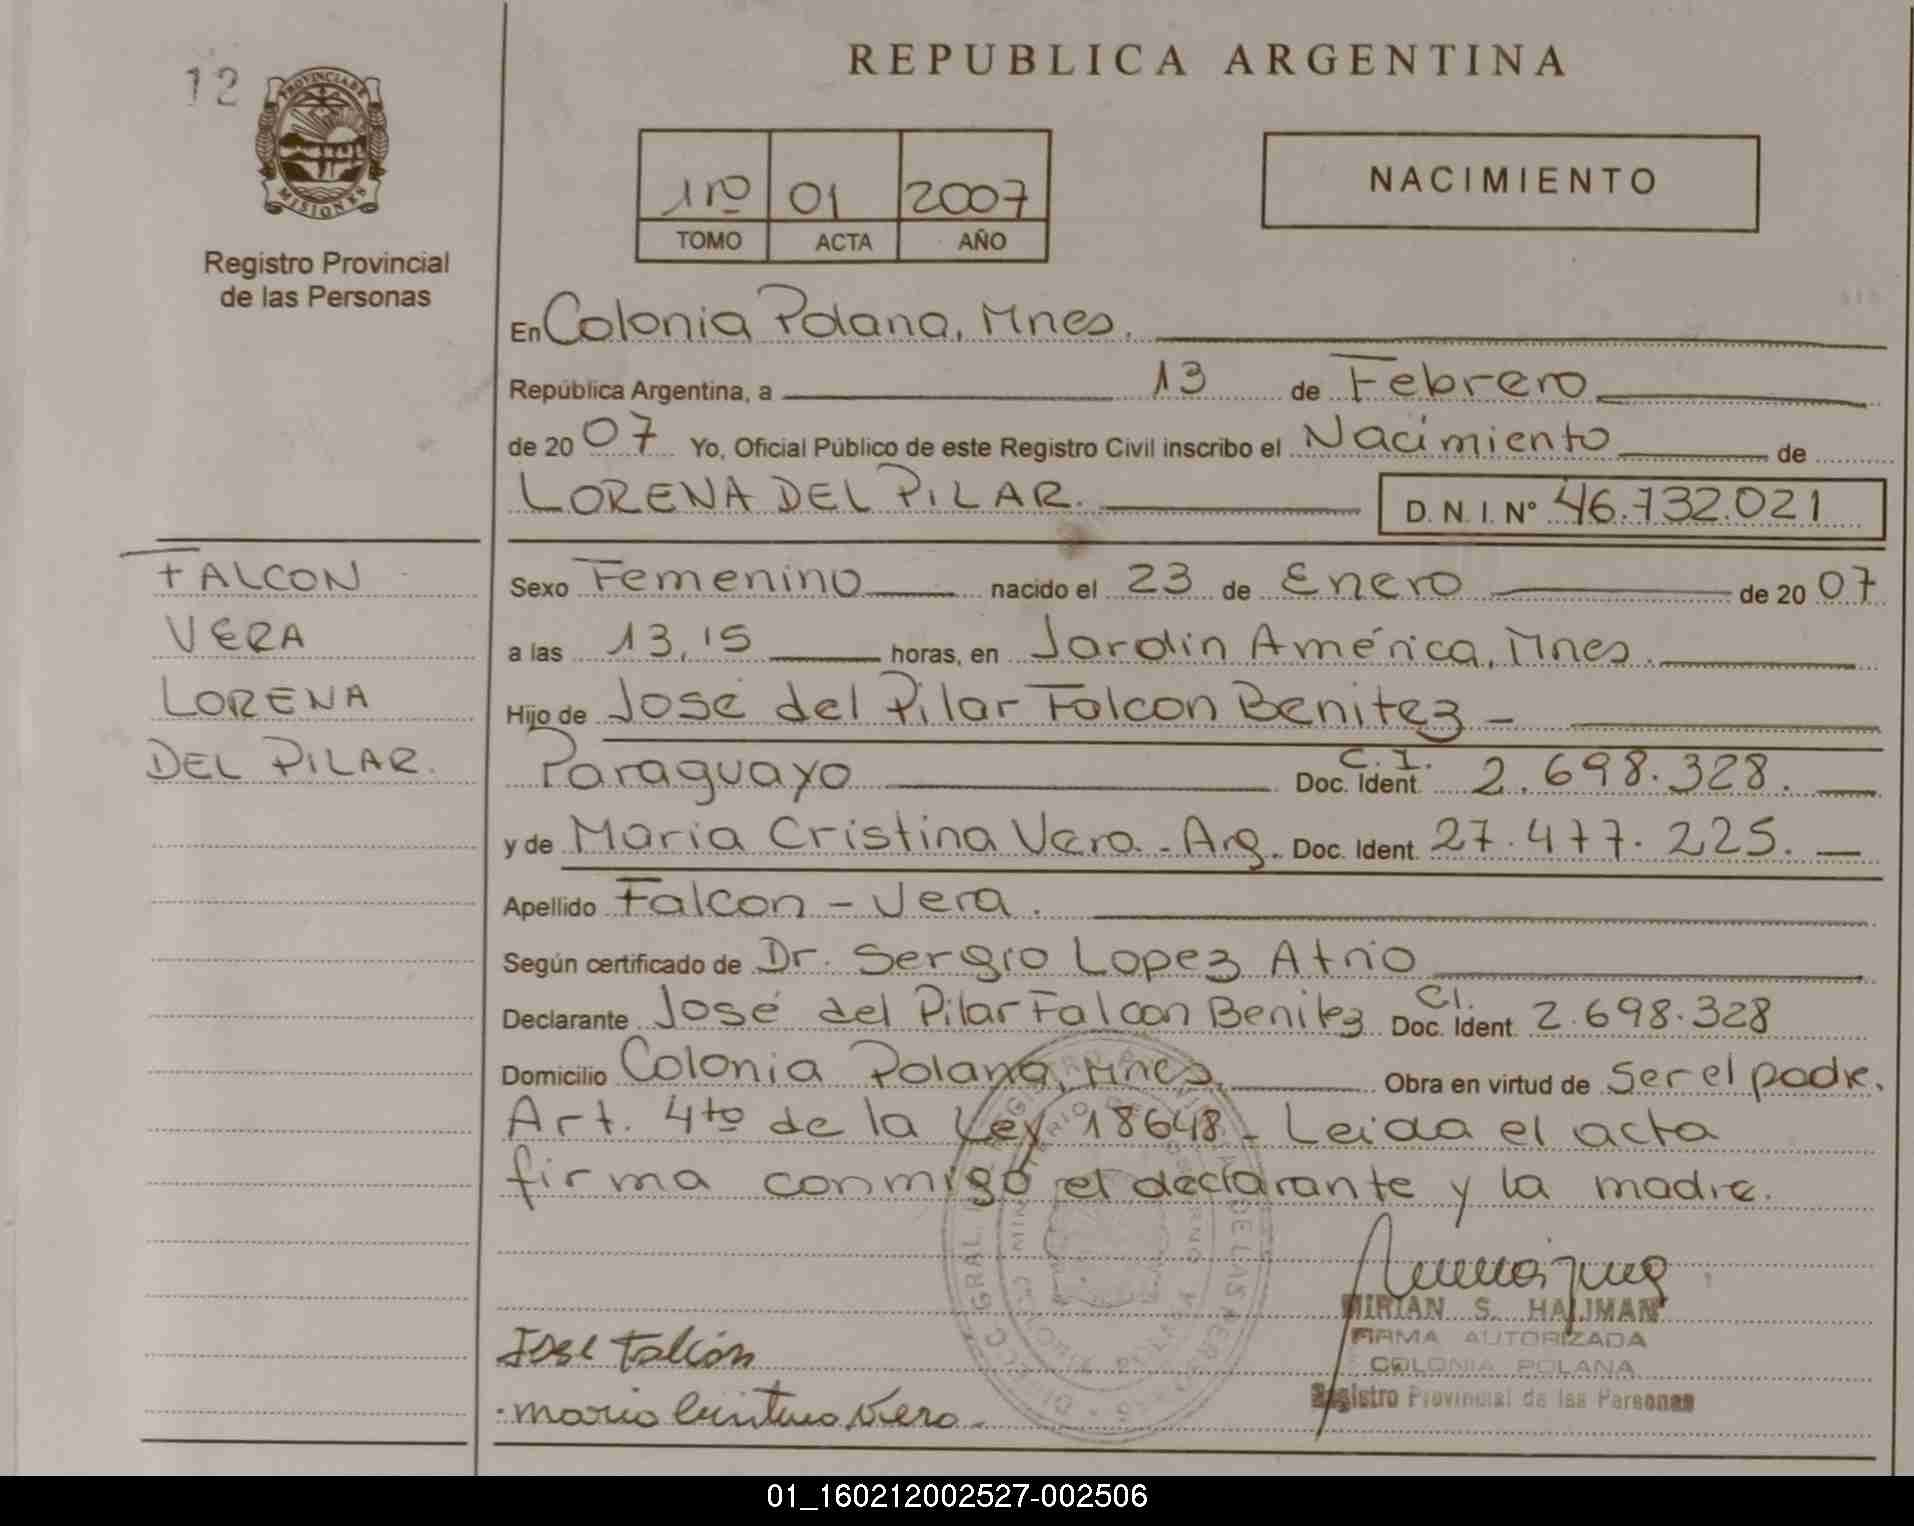 12
PROVINCIA DE
MISIONES
Registro Provincial
de las Personas
REPUBLICA ARGENTINA
1rº 01 2007
TOMO ACTA AÑO
NACIMIENTO
En Colonia Polana, Mnes.
República Argentina, a 13 de Febrero
de 20 07 Yo, Oficial Público de este Registro Civil inscribo el Nacimiento de
LORENA DEL PILAR.
D.N.I. Nº 46.732.021
FALCON
VERA
LORENA
DEL PILAR.
Sexo Femenino nacido el 23 de Enero de 20 07
a las 13,15 horas, en Jardín América, Mnes.
Hijo de José del Pilar Falcon Benitez -
Paraguayo C.I. Doc. Ident. 2.698.328.
y de Maria Cristina Vera - Arg. Doc. Ident. 27.477.225.
Apellido Falcon - Vera.
Según certificado de Dr. Sergio Lopez Atrio
Declarante José del Pilar Falcon Benitez CI. Doc. Ident. 2.698.328
Domicilio Colonia Polana, Mnes. Obra en virtud de Ser el padre.
Art. 4to de la Ley 18648 - Leida el acta
firma conmigo el declarante y la madre.
MIRIAN S. HALIMAN
FIRMA AUTORIZADA
COLONIA POLANA
Registro Provincial de las Personas
José Falcón
Maria Cristina Vera
01_160212002527-002506